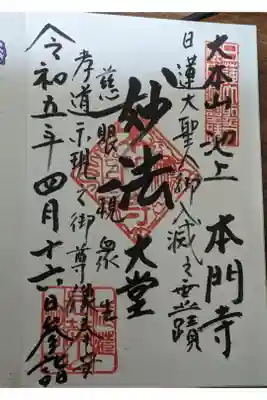 大本山池上 本門寺
日蓮大聖人御入滅之霊蹟
妙法 大堂
慈眼視衆生
孝道示現之御尊像奉安
令和五年四月十六日参詣